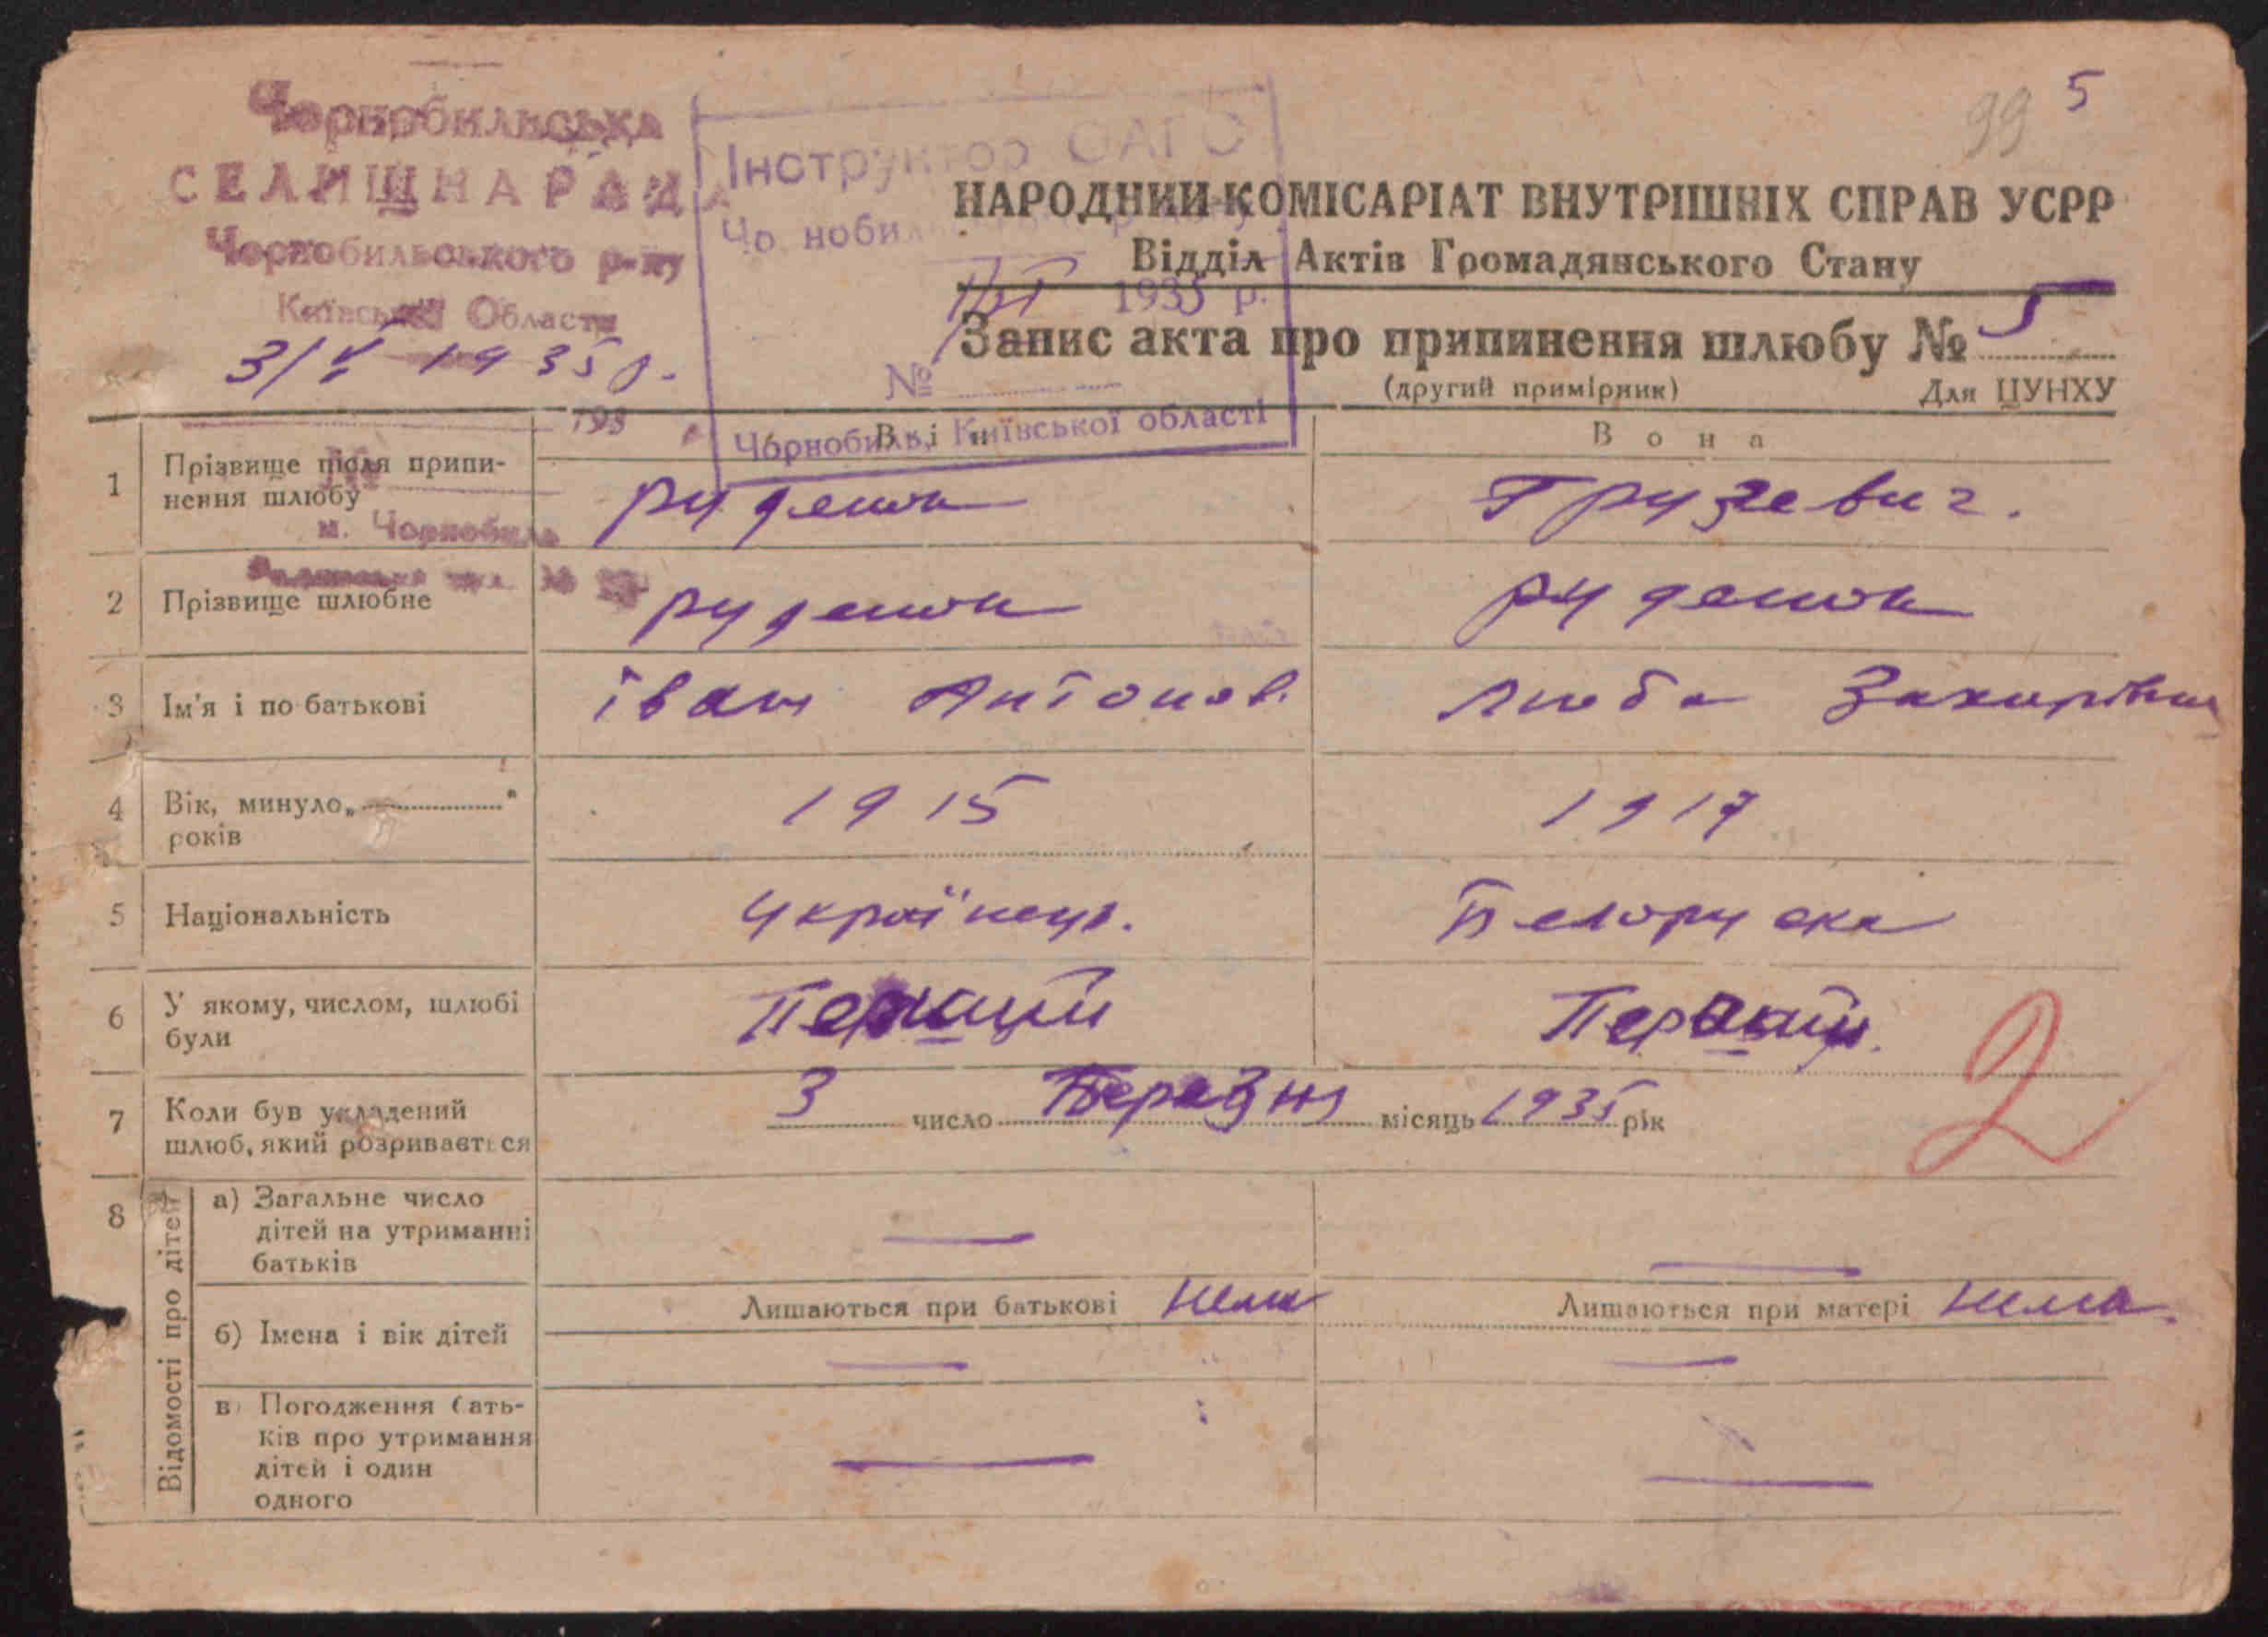 99 5
Чорнобильська
СЕЛИЩНА РАДА
Чорнобильського р-ну
Київської Области
3/V 1935 р.
193
м. Чорнобиль
Інструктор ОАГС
Чорнобильського р-ну
1935 р.
№
Чорнобиль, Київської області
НАРОДНИЙ КОМІСАРІАТ ВНУТРІШНІХ СПРАВ УСРР
Відділ Актів Громадянського Стану
Запис акта про припинення шлюбу № 5
(другий примірник) Для ЦУНХУ
Він Вона
1 Прізвище після припи-
нення шлюбу Руденок Грузевич.
2 Прізвище шлюбне Руденок Руденок
3 Ім'я і по-батькові Іван Антонов. Люба Захарівна
4 Вік, минуло „ “
років 1915 1917
5 Національність Українець. Белоруска
6 У якому, числом, шлюбі
були Перший Перший.
7 Коли був укладений
шлюб, який розривається 3 число Березня місяць 1935 рік
2
8 Відомості про дітей
а) Загальне число
дітей на утриманні
батьків — —
Лишаються при батькові Нема Лишаються при матері Нема.
б) Імена і вік дітей — —
в) Погодження бать-
ків про утримання
дітей і один
одного — —